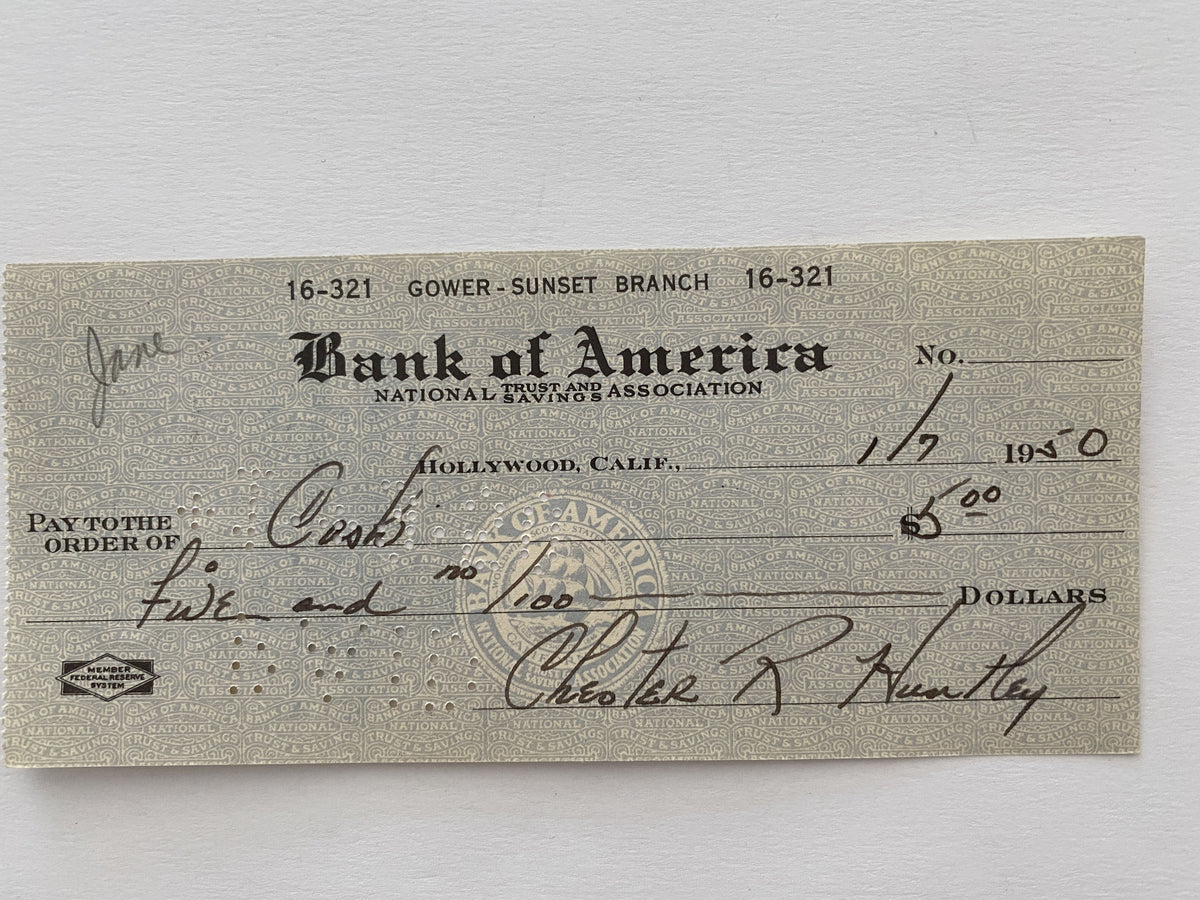 16-321 GOWER-SUNSET BRANCH 16-321
Jane
Bank of America
No.
NATIONAL TRUST AND SAVINGS ASSOCIATION
HOLLYWOOD, CALIF., 1/7 1950
PAY TO THE ORDER OF Cash $5 00
Five and no/100 DOLLARS
MEMBER
FEDERAL RESERVE
SYSTEM
Chester R Huntley
BANK OF AMERICA
NATIONAL
ASSOCIATION